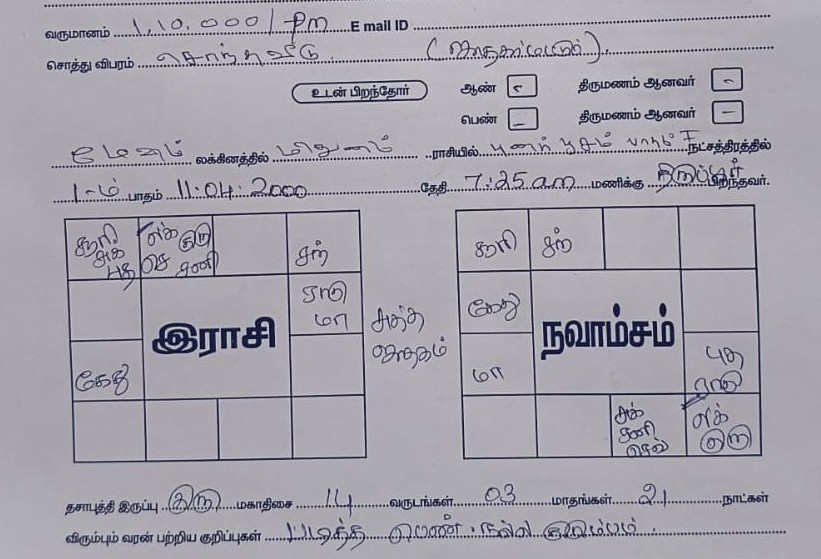 வருமானம் 1,10,000/ pm E mail ID
சொத்து விபரம் சொந்த வீடு
உடன் பிறந்தோர் ஆண் திருமணம் ஆனவர் -
பெண் - திருமணம் ஆனவர் -
மேஷம் லக்கினத்தில் மிதுனம் ராசியில் புனர் பூசம் பாதம் I நட்சத்திரத்தில்
1-ம் பாதம் 11.04.2000 தேதி 7:25 am மணிக்கு திருப்பூர் பிறந்தவர்.
சூரி சுக் புத
லக் குரு செ சனி
சந்
ராகு மா
கேது
இராசி
சுத்த ஜாதகம்
சூரி
சந்
கேது
மா
நவாம்சம்
புத ராகு
சுக் சனி செவ்
லக் குரு
தசாபுத்தி இருப்பு குரு மகாதிசை 14 வருடங்கள் 03 மாதங்கள் 21 நாட்கள்
விரும்பும் வரன் பற்றிய குறிப்புகள் படித்த பெண். நல்ல குடும்பம்.